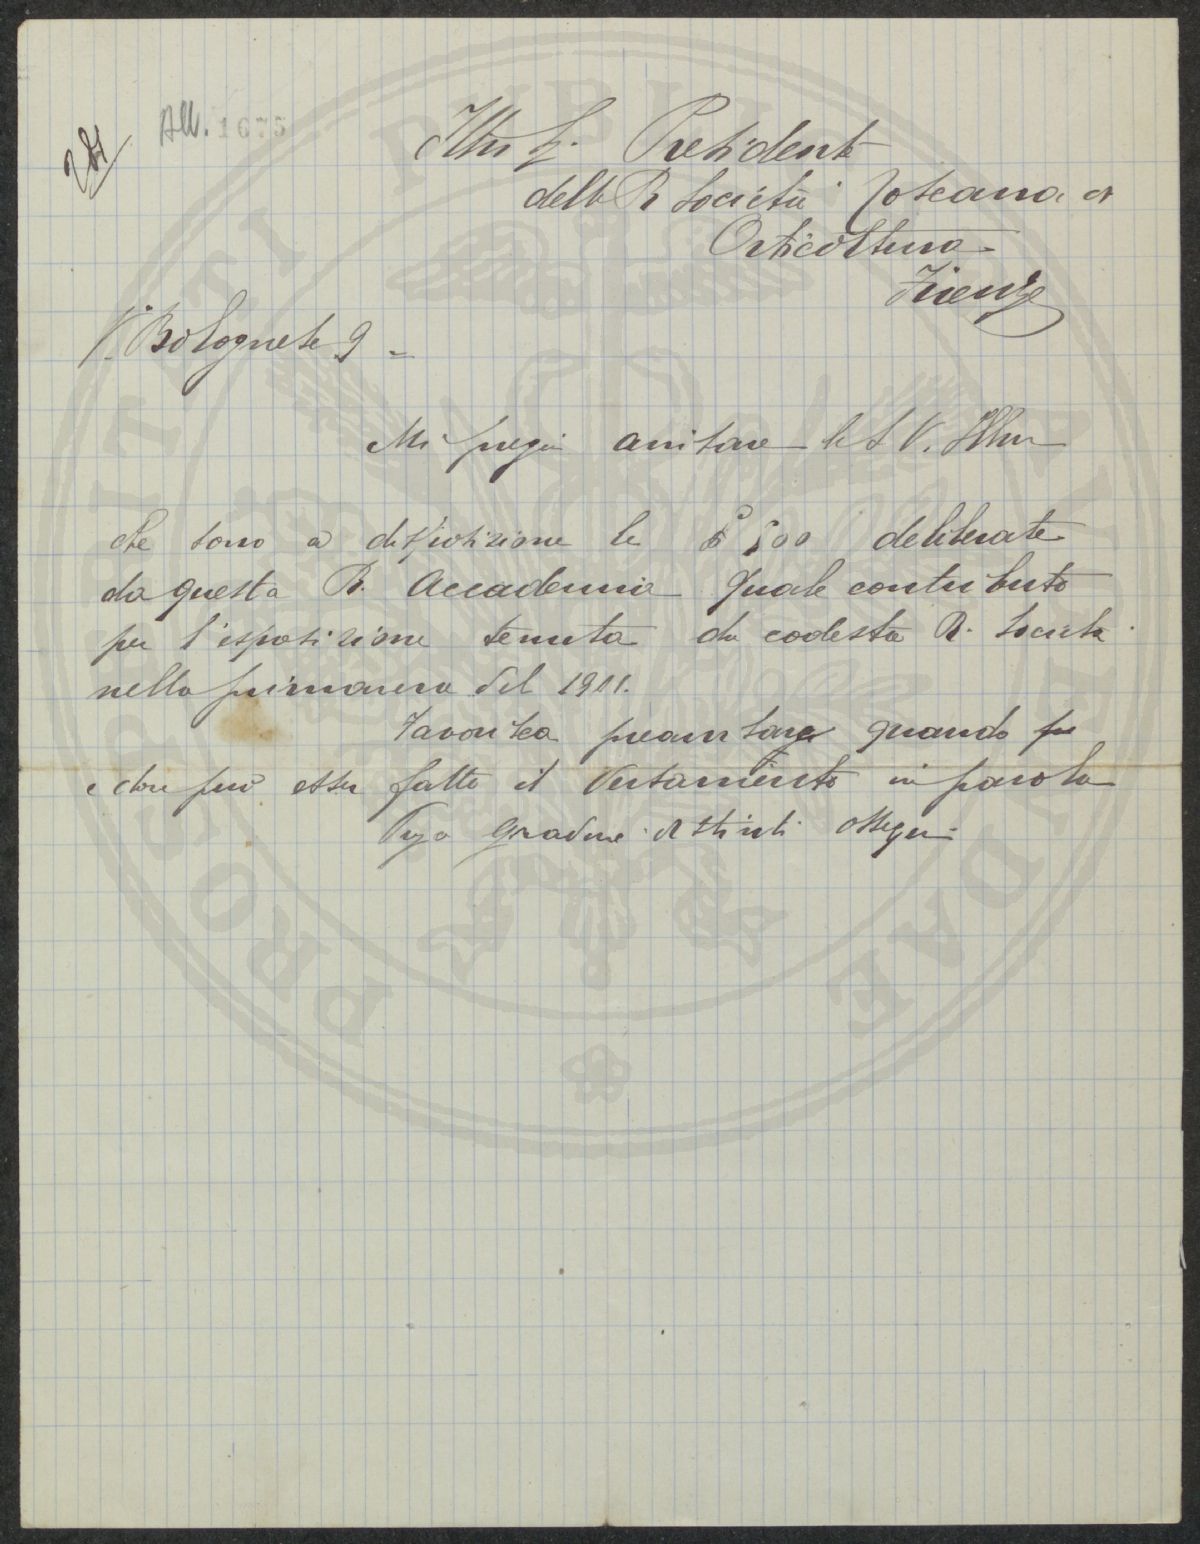 281
All. 1675
Illmo Sig. Presidente
della R Società Toscana di
Orticoltura
Firenze
V. Bolognese 9 =
Mi pregio avvisare la S V. Illma
che sono a disposizione le £ 500 deliberate
da questa R. Accademia quale contributo
per l'esposizione tenuta da codesta R. Società
nella primavera del 1911.
Favorisca quando
e dove può esser fatto il versamento in parola
gradire distinti ossequi
PROSPERITATI PUBLICAE